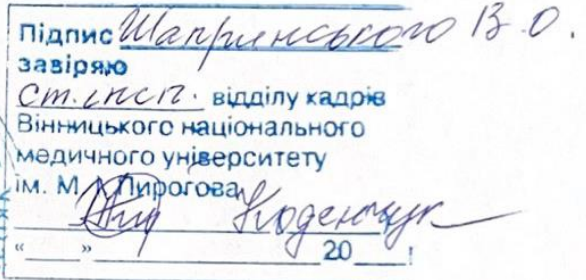 Підпис Шапринського В.О.
завіряю
ст.інсп. відділу кадрів
Вінницького національного
медичного університету
ім. М.І. Пирогова
Коденчук
"___" ________ 20___